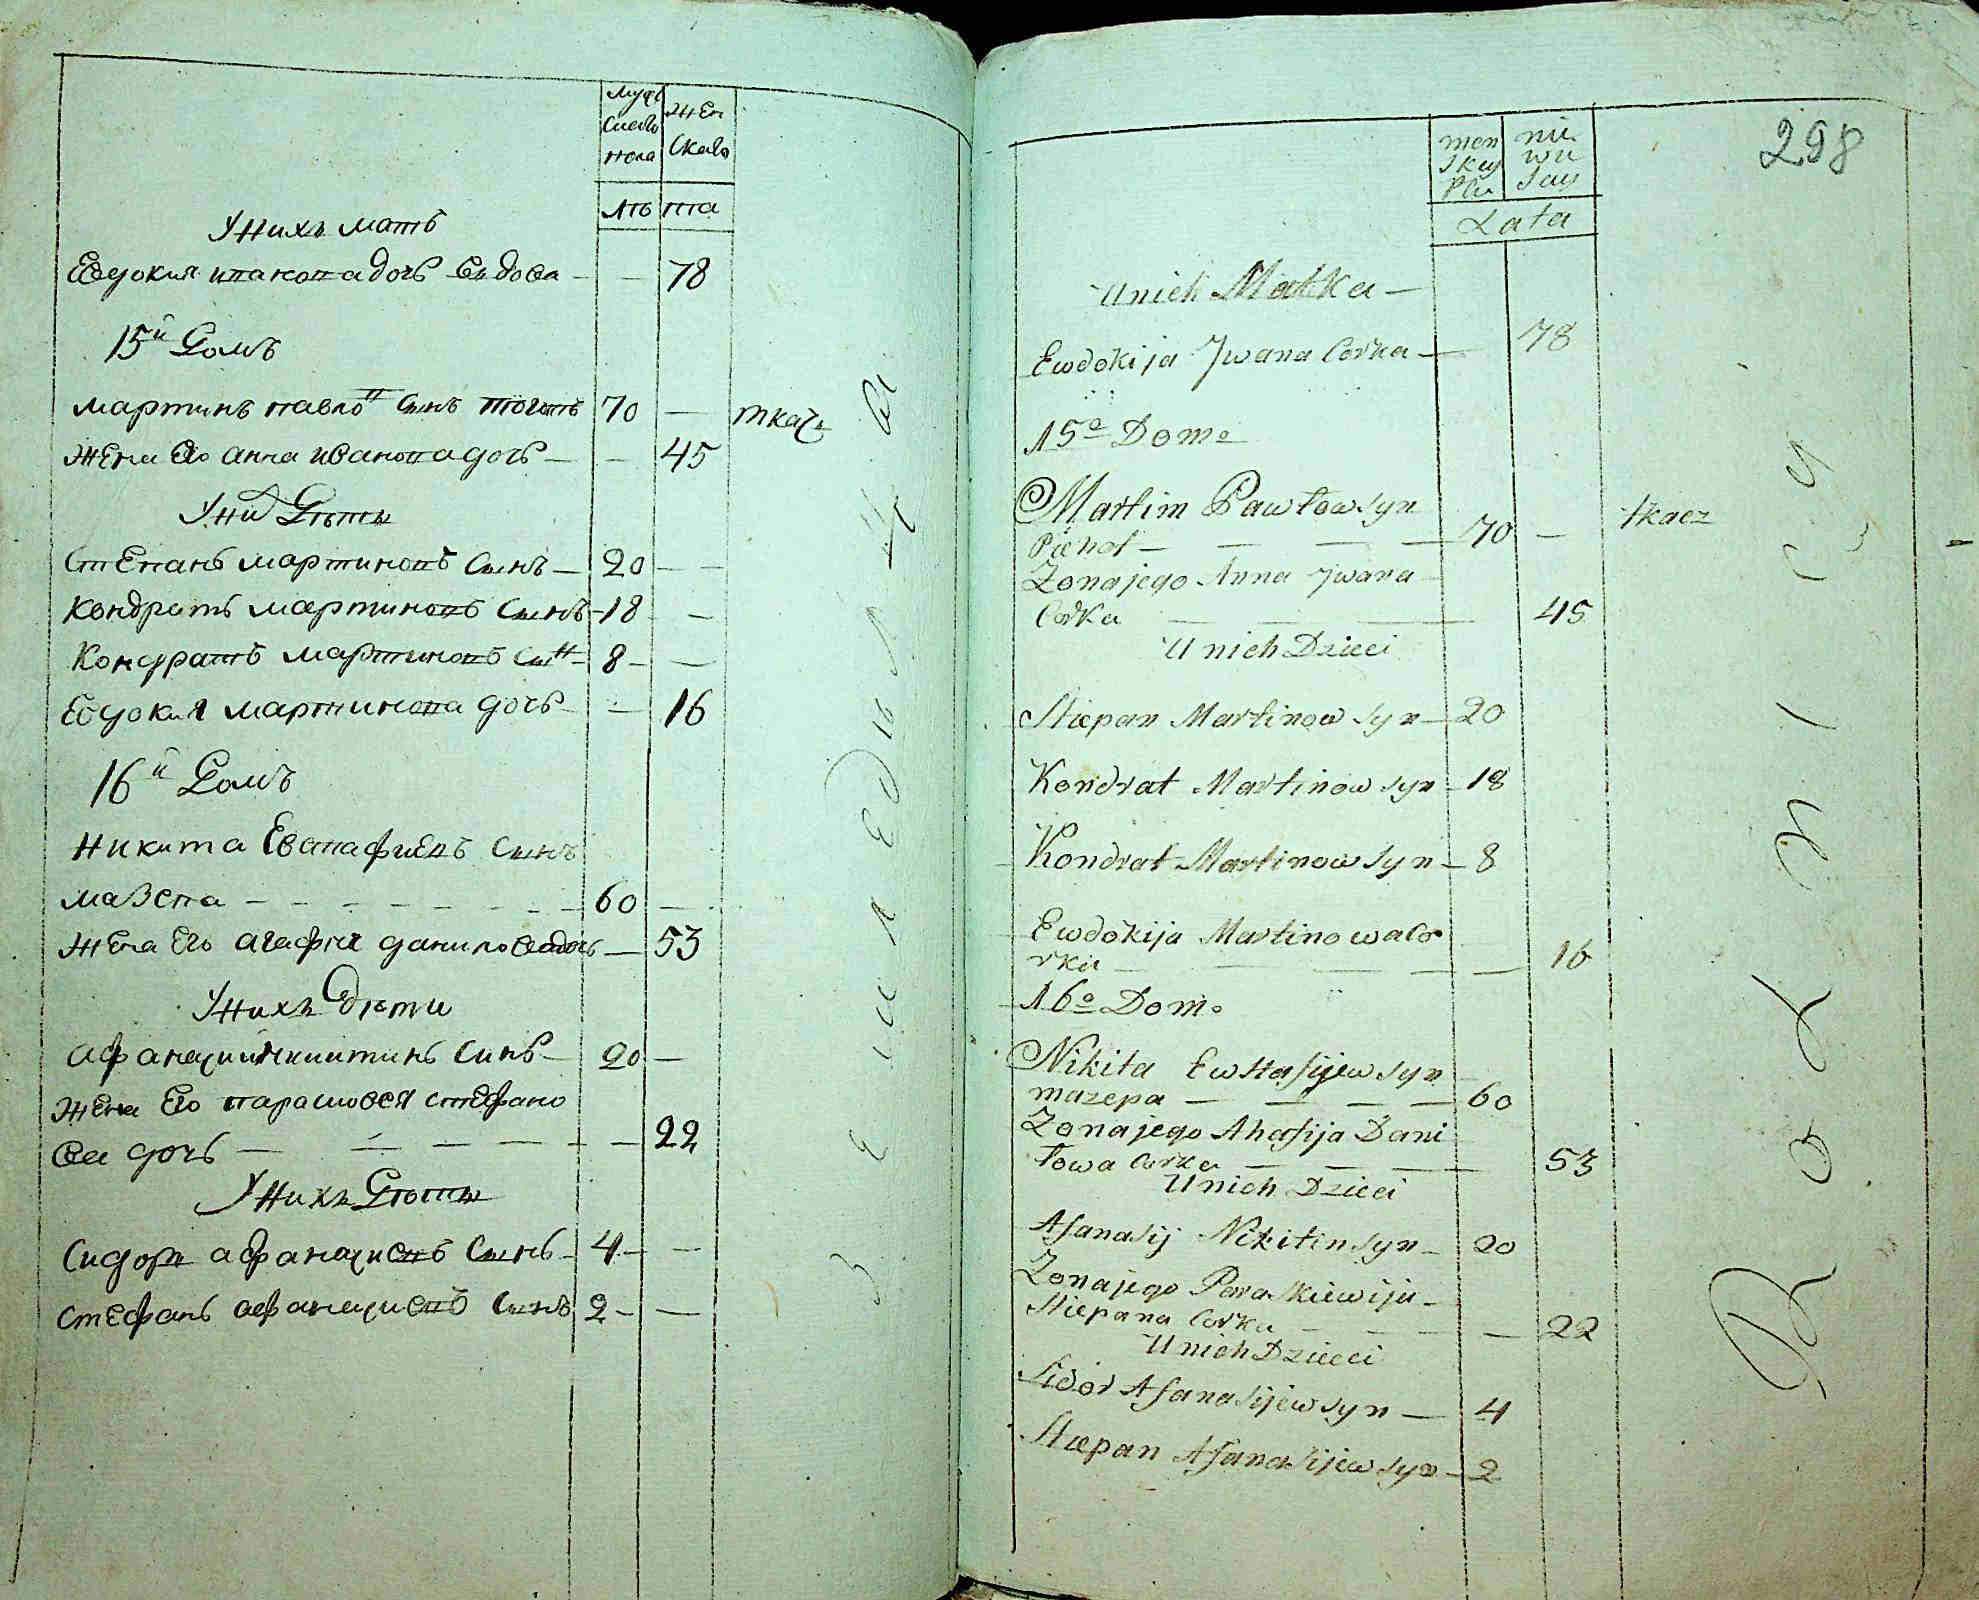 Муж
ского
пола
жен
ского
лѣта
У нихъ мать
Евдокия иванова дочь вдова — — 78
15й Домъ
Мартинъ павловъ сынъ 70 — ткачь
жена его анна иванова дочь — — 45
У них Дѣти
Степанъ мартиновъ сынъ — 20 — —
Кондратъ мартиновъ сынъ — 18 —
Кондратъ мартиновъ сын — 8 — —
Евдокия мартинова дочь — — 16
16й Домъ
Никита сынъ
мазепа — — — — — — — 60 —
жена его агафия данилова дочь — 53
У нихъ дѣти
афанасий никитинъ синъ — 20 —
жена его парасковея стефано
ва дочь — — — — — 22
У нихъ Дѣти
Сидоръ афанасиевъ сынъ — 4 — —
стефанъ афанасиевъ сынъ 2 — —
земледѣлцы
298
men
skey
Plci
nie
wie
scey
Lata
U nich Matka —
Ewdokija Jwana Corka — 78
15o Dom
Martim Pawłow syn
— — — — 70 — tkacz
Zona jego Anna Jwana
Corka — — — 45
U nich Dzieci
Stiepan Martinow syn — 20
Kondrat Martinow syn — 18
Kondrat Martinow syn — 8
Ewdokija Martinowa Co
rka — — — — — 16
16o Dom
Nikita syn
mazepa — — — — 60
Zona jego Ahafija Dani
łowa Corka — — — 53
U nich Dzieci
Afanasij Nikitin syn — 20
Zona jego Paraskiewija —
Stiepana Corka — — — — — 22
U nich Dzieci
Sidor Afanasijew syn — 4
Stiepan Afanasijew syn — 2
Rolnicy